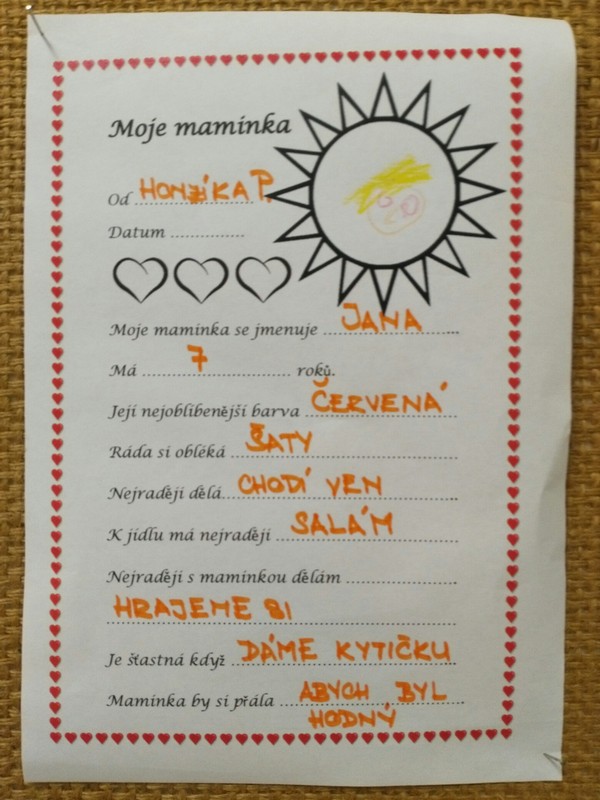 Moje maminka
Od HONZÍKA P.
Datum
Moje maminka se jmenuje JANA
Má 7 roků.
Její nejoblíbenější barva ČERVENÁ
Ráda si obléká ŠATY
Nejraději dělá CHODÍ VEN
K jídlu má nejraději SALÁM
Nejraději s maminkou dělám
HRAJEME SI
Je šťastná když DÁME KYTIČKU
Maminka by si přála ABYCH BYL
HODNÝ